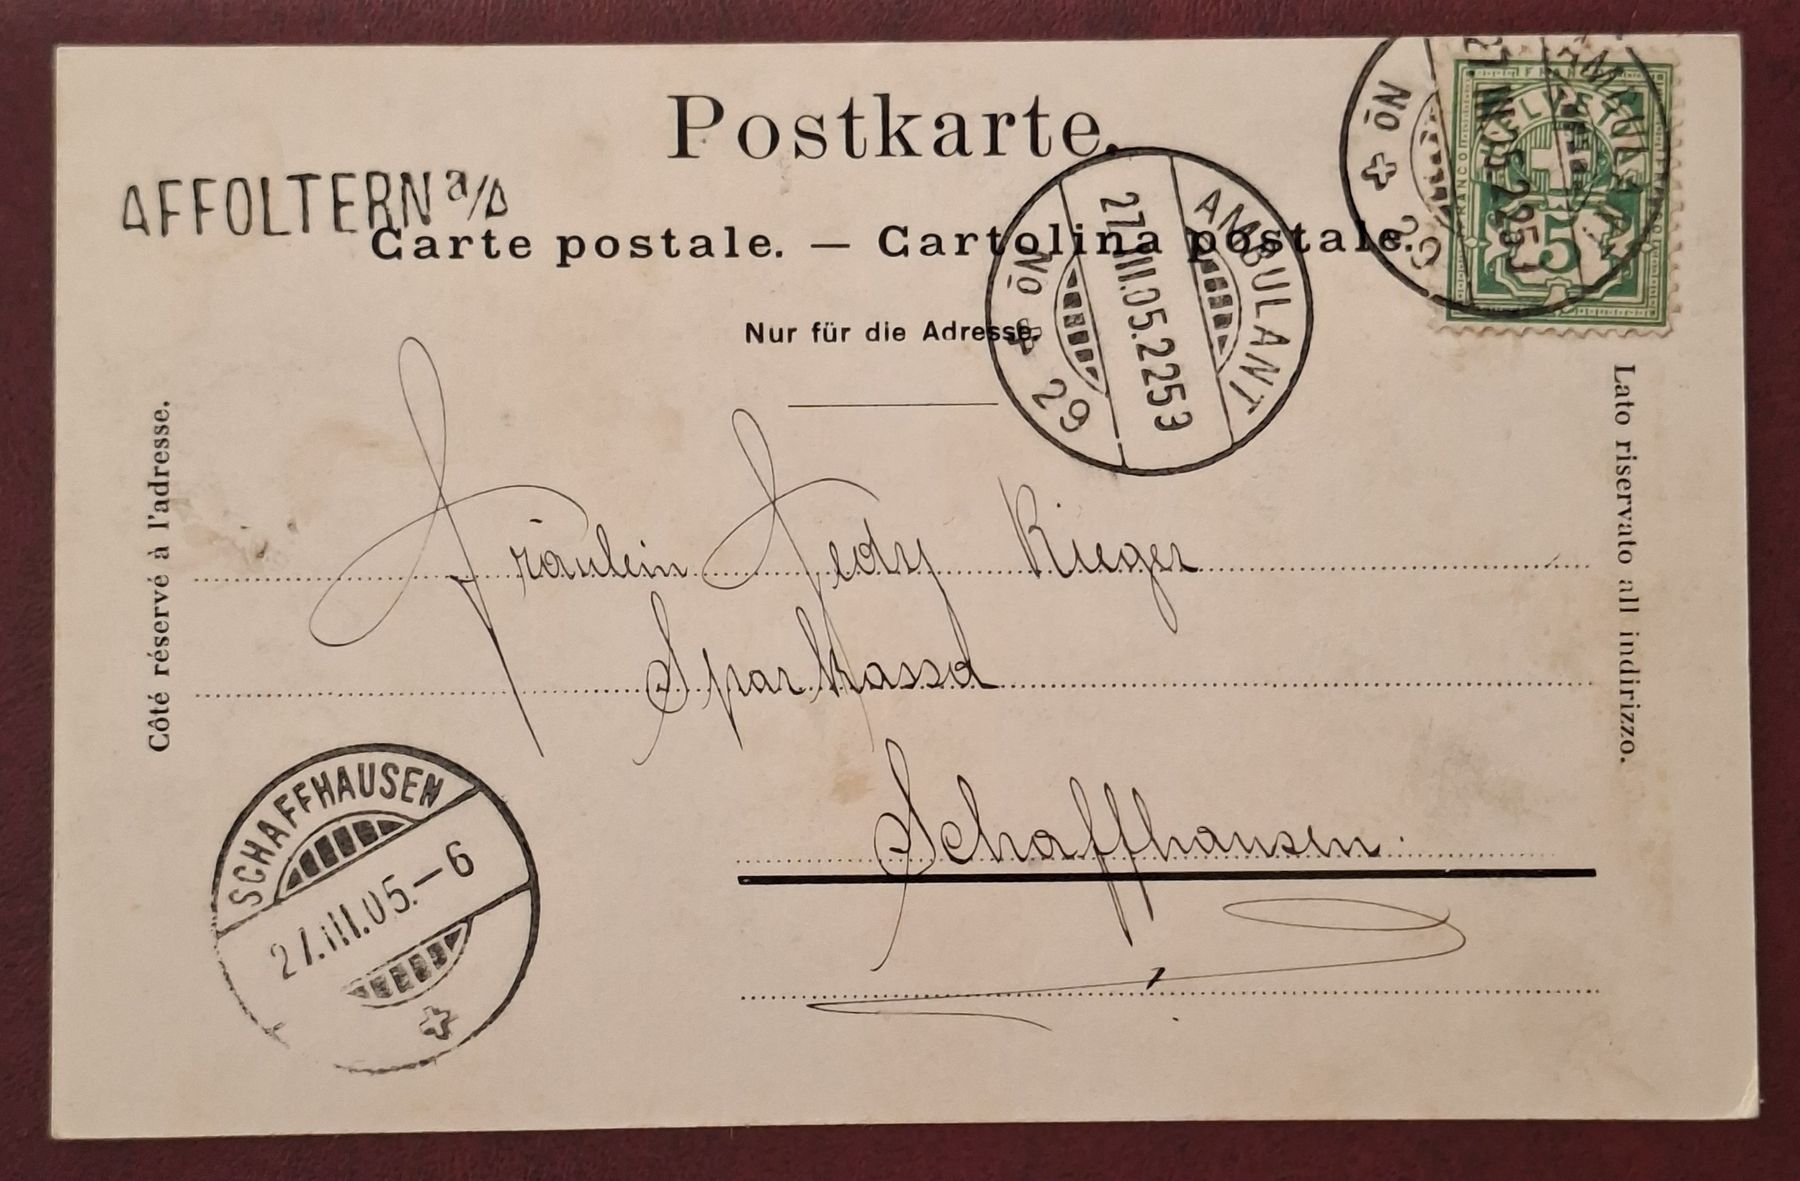 Postkarte.
AFFOLTERN a/A
Carte postale. — Cartolina postale.
Nur für die Adresse.
Côté réservé à l'adresse.
Lato riservato all indirizzo.
AMBULANT
27.III.05.2253
No 29
AMBULANT
27.III.05.2253
No 29
HELVETIA
FRANCO
5
Fräulein Hedy Rieger
Sparkassa
Schaffhausen.
SCHAFFHAUSEN
27.III.05.–6